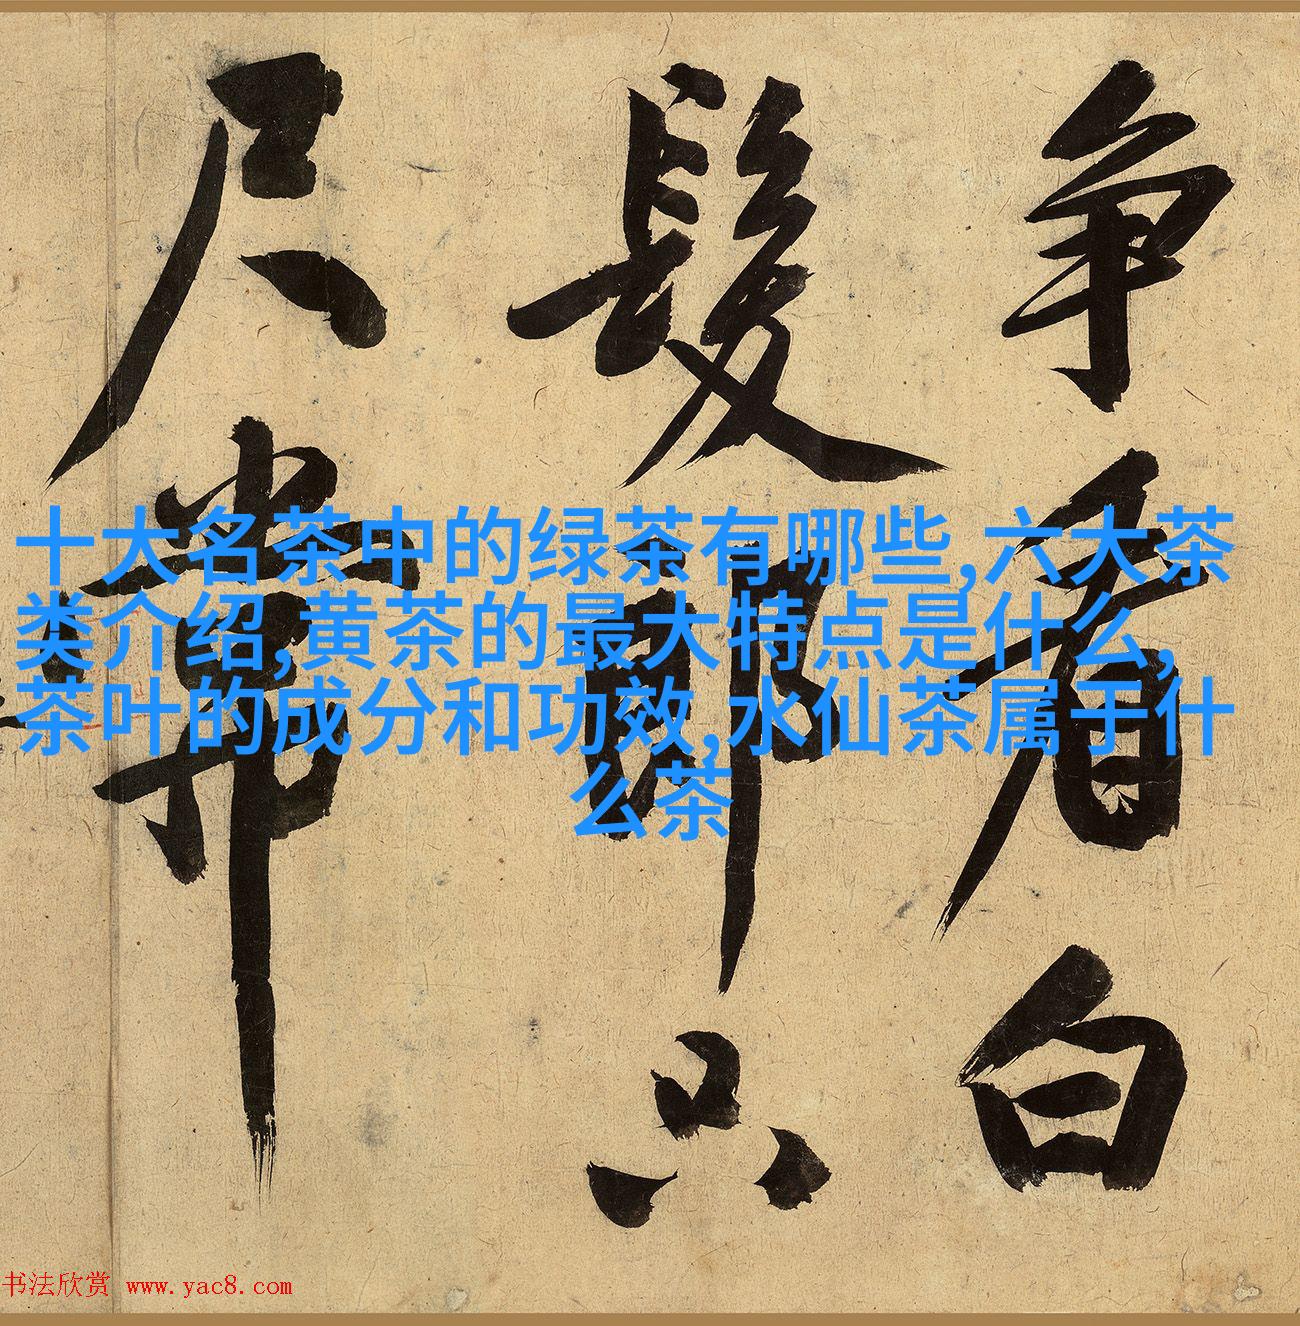 争看白
髮郎只
尺常
十大名茶中的绿茶有哪些,六大茶
类介绍,黄茶的最大特点是什么,
茶叶的成分和功效,水仙茶属于什
么茶
书法欣赏 www.yac8.com